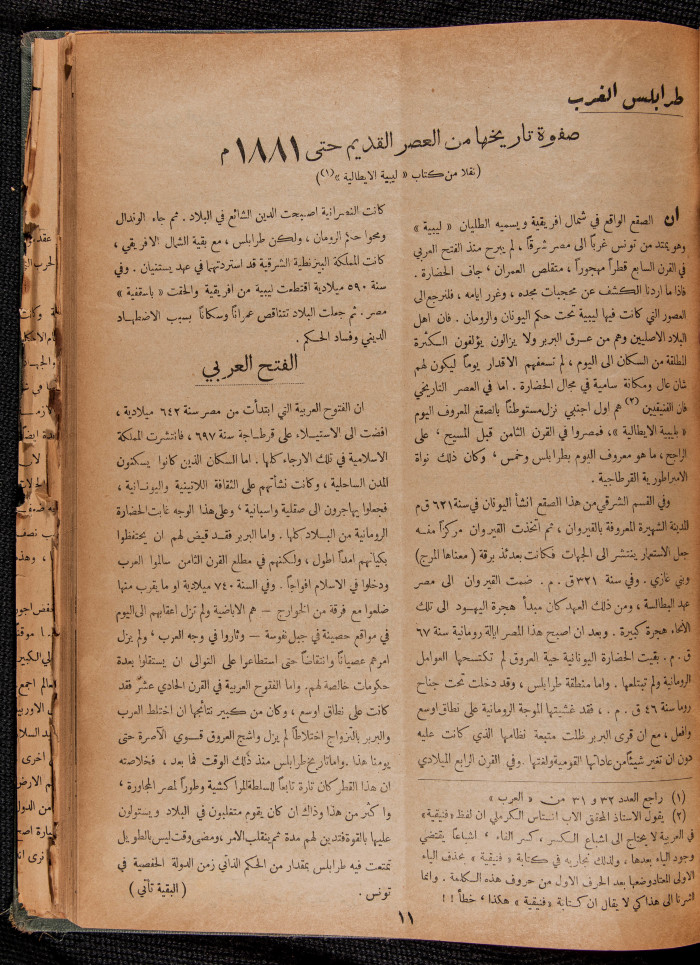 طرابلس الغرب
صفوة تاريخها من العصر القديم حتى ١٨٨١ م
(نقلا من كتاب « ليبية الايطالية » (١))
ان الصقع الواقع في شمال افريقية ويسميه الطليان « ليبية »
وهو يمتد من تونس غرباً الى مصر شرقاً ، لم يبرح منذ الفتح العربي
في القرن السابع قطراً مهجوراً ، متقلص العمران ، جاف الحضارة .
فاذا ما اردنا الكشف عن محجبات مجده ، وغرر ايامه ، فلنرجع الى
العصور التي كانت فيها ليبية تحت حكم اليونان والرومان . فان اهل
البلاد الاصليين وهم من عرق البربر ولا يزالون يؤلفون السكثرة
المطلقة من السكان الى اليوم ، لم تسعفهم الاقدار يوماً ليكون لهم
شان عال ومكانة سامية في مجال الحضارة . اما في العصر التاريخي
فان الفنيقيين (٢) هم اول اجنبي نزل مستوطناً بالصقع المعروف اليوم
« بليبية الايطالية » ، فمصروا في القرن الثامن قبل المسيح ، على
الراجح ، ما هو معروف اليوم بطرابلس وخمس ، وكان ذلك نواة
الامبراطورية القرطاجية .
وفي القسم الشرقي من هذا الصقع انشأ اليوفان في سنة ٦٣١ ق م
المدينة الشهيرة المعروفة بالقيروان ، ثم اتخذت القيروان مركزاً منه
جعل الاستعمار ينتشر الى الجهات فكانت بعدئذ برقة ( معناها المرج )
وبني غازي . وفي سنة ٣٢١ ق . م . ضمت القيروان الى مصر
عهد البطالسة ، ومن ذلك العهد كان مبدأ هجرة اليهود الى تلك
الانحاء هجرة كبيرة . وبعد ان اصبح هذا المصر ايالة رومانية سنة ٦٧
ق . م . بقيت الحضارة اليونانية حية العروق لم تكتسحها العوامل
الرومانية ولم تبتلعها . واما منطقة طرابلس ، وقد دخلت تحت جناح
روما سنة ٤٦ ق . م . ، فقد غشيتها الموجة الرومانية على نطاق اوسع
وافعل ، مع ان قرى البربر ظلت متبعة نظامها الذي كانت عليه
دون ان تغير شيئاً من عاداتها القومية ولغتها . وفي القرن الرابع الميلادي
(١) راجع العدد ٣٢ و ٣١ من « العرب »
(٢) يقول الاستاذ المحقق الاب انستاس الكرملي ان لفظ «فنيقية»
في العربية لا يحتاج الى اشباع السكسر ، كسر الفاء ، اشباعاً يقتضي
وجود الياء بعدها ، ولذلك نجاريه في كتابة « فنيقية » بحذف الياء
الاولى المعتاد وضعها بعد الحرف الاول من حروف هذه السكلمة . وانما
اشرنا الى هذا كي لا يقال ان كتابة « فنيقية » هكذا ، خطأ !!
كانت النصرانية اصبحت الدين الشائع في البلاد . ثم جاء الوندال
ومحوا حكم الرومان ، ولكن طرابلس ، مع بقية الشمال الافريقي ،
كانت المملكة البيزنطية الشرقية قد استردتها في عهد يستنيان . وفي
سنة ٥٩٠ ميلادية اقتطعت ليبية من افريقية والحقت « باسقفية »
مصر . ثم جعلت البلاد تتناقص عمراناً وسكاناً بسبب الاضطهاد
الديني وفساد الحكم .
الفتح العربي
ان الفتوح العربية التي ابتدأت من مصر سنة ٦٤٢ ميلادية ،
افضت الى الاستيلاء على قرطاجة سنة ٦٩٧ ، فانتشرت المملكة
الاسلامية في تلك الارجاء كلها . اما السكان الذين كانوا يسكنون
المدن الساحلية ، وكانت نشأتهم على الثقافة اللاتينية واليونانية ،
فجعلوا يهاجرون الى صقلية واسبانية ، وعلى هذا الوجه غابت الحضارة
الرومانية من البلاد كلها . واما البربر فقد قيض لهم ان يحتفظوا
بكيانهم امداً اطول ، ولكنهم في مطلع القرن الثامن سالموا العرب
ودخلوا في الاسلام افواجاً . وفي السنة ٧٤٠ ميلادية او ما يقرب منها
ضلعوا مع فرقة من الخوارج – هم الاباضية ولم تزل اعقابهم الى اليوم
في مواقع حصينة في جبل نفوسة – وثاروا في وجه العرب ، ولم يزل
امرهم عصياناً وانتقاضاً حتى استطاعوا على التوالي ان يستقلوا بعدة
حكومات خالصة لهم . واما الفتوح العربية في القرن الحادي عشر فقد
كانت على نطاق اوسع ، وكان من كبير نتائجها ان اختلط العرب
والبربر بالتزواج اختلاطاً لم يزل واشج العروق قسوي الآصرة حتى
يومنا هذا . واما تاريخ طرابلس منذ ذلك الوقت فما بعد ، فخلاصته
ان هذا القطر كان تارة تابعاً للسلطة المراكشية وطوراً لمصر المجاورة ،
واكثر من هذا وذاك ان كان يقوم متغلبون في البلاد ويستولون
عليها بالقوة فتدين لهم مدة ثم ينقلب الامر ، ومضى وقت ليس بالطويل
تمتعت فيه طرابلس بمقدار من الحكم الذاتي زمن الدولة الحفصية في
تونس . ( البقية تأتي )
١١